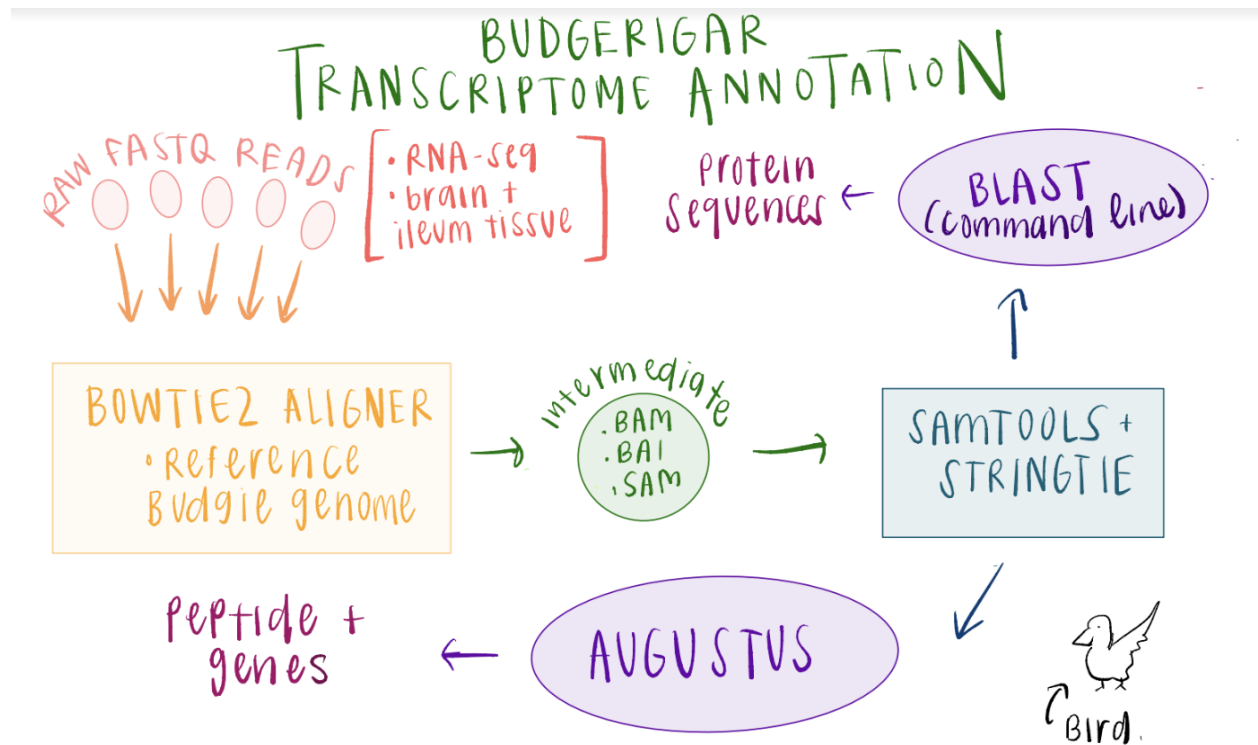 BUDGERIGAR
TRANSCRIPTOME ANNOTATION
RAW FASTQ READS
• RNA-seq
• brain +
ileum tissue
Protein
sequences
BLAST
(command line)
BOWTIE2 ALIGNER
• Reference
Budgie genome
Intermediate
. BAM
. BAI
. SAM
SAMTOOLS +
STRINGTIE
Peptide +
genes
AUGUSTUS
Bird.